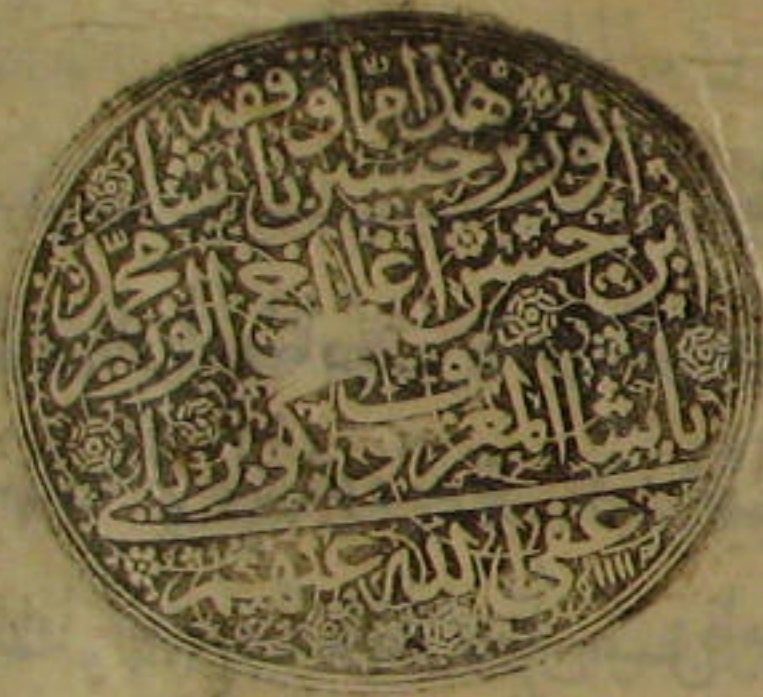 هذا مما وقفه
الوزير حسين باشا
ابن حسن اغا اخ الوزير محمد
باشا المعرف بكوبريلي
عفى الله عنهم